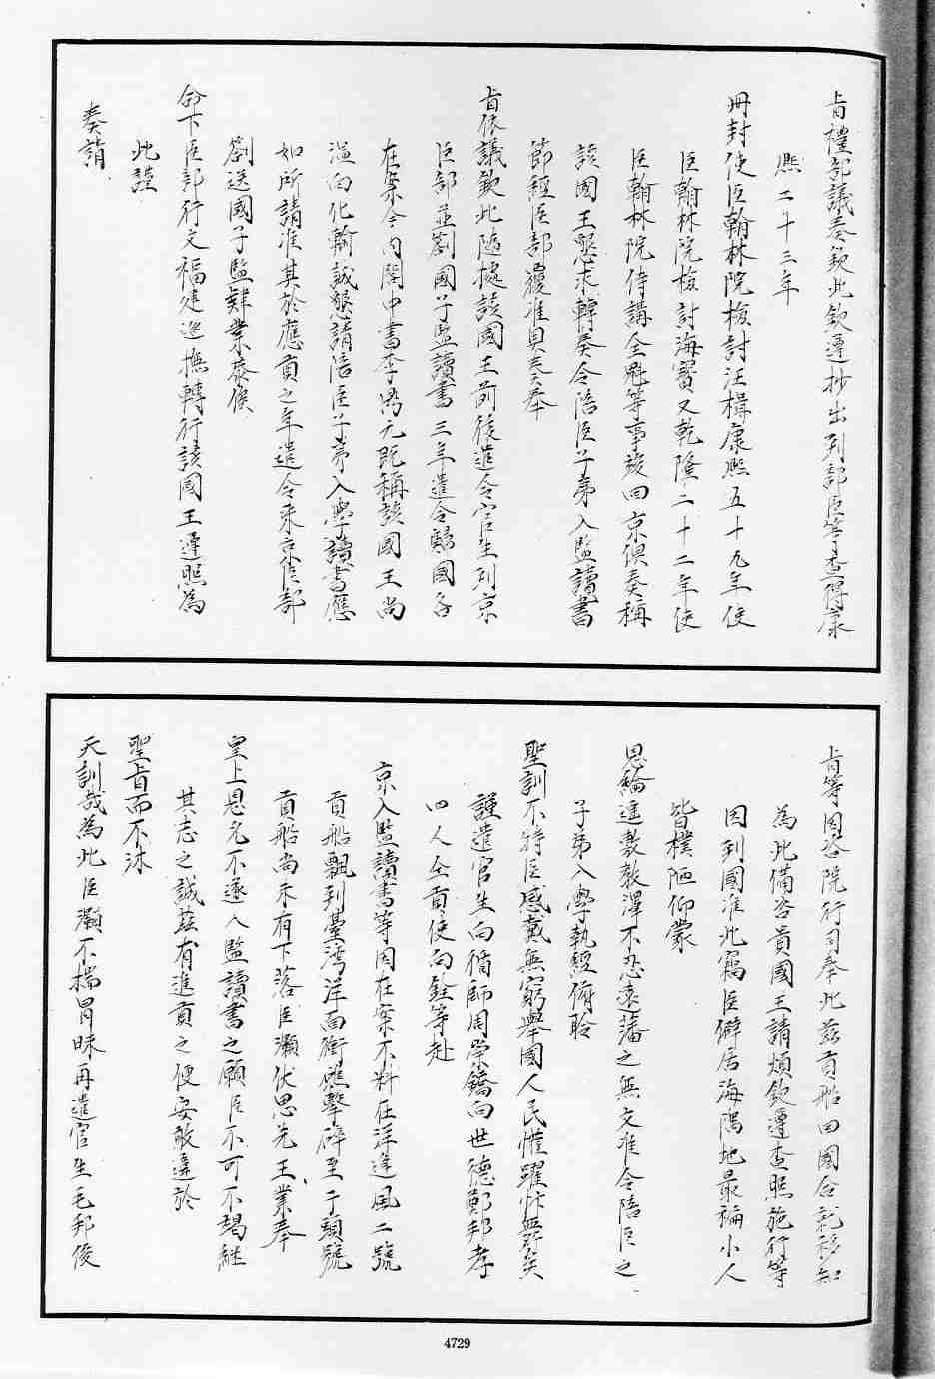 旨禮部議奏欽此欽遵抄出到部臣等查得康
熙二十三年
冊封使臣翰林院檢討汪楫康熙五十九年使
臣翰林院檢討海寶又乾隆二十二年使
臣翰林院侍講全魁等事竣回京俱奏稱
該國王懇求轉奏令陪臣子弟入監讀書
節經臣部覆准具奏奉
旨依議欽此隨據該國王前後遣令官生到京
臣部並劄國子監讀書三年遣令歸國各
在案今內閣中書李鼎元既稱該國王尚
溫向化輸誠懇請陪臣子弟入學讀書應
如所請准其於應貢之年遣令來京臣部
劄送國子監肄業恭候
命下臣部行文福建巡撫轉行該國王遵照為
此謹
奏請
旨等因咨院行司奉此茲貢船回國合就移知
為此備咨貴國王請煩欽遵查照施行等
因到國准此竊臣僻居海隅地最褊小人
皆樸陋仰蒙
恩綸進敷教澤不忍遠藩之無文准令陪臣之
子弟入學執經俯聆
聖訓不特臣感戴無窮舉國人民懽躍忭舞矣
謹遣官生向循師周崇鐈向世德鄭邦孝
四人仝貢使向銓等赴
京入監讀書等因在案不料在洋遭風二號
貢船飄到臺灣洋面衝礁擊碎至于頭號
貢船尚未有下落臣灝伏思先王業奉
皇上恩允不遂入監讀書之願臣不可不竭繼
其志之誠茲有進貢之便安敢違於
聖旨而不沐
天訓哉為此臣灝不揣冒昧再遣官生毛邦俊
4729